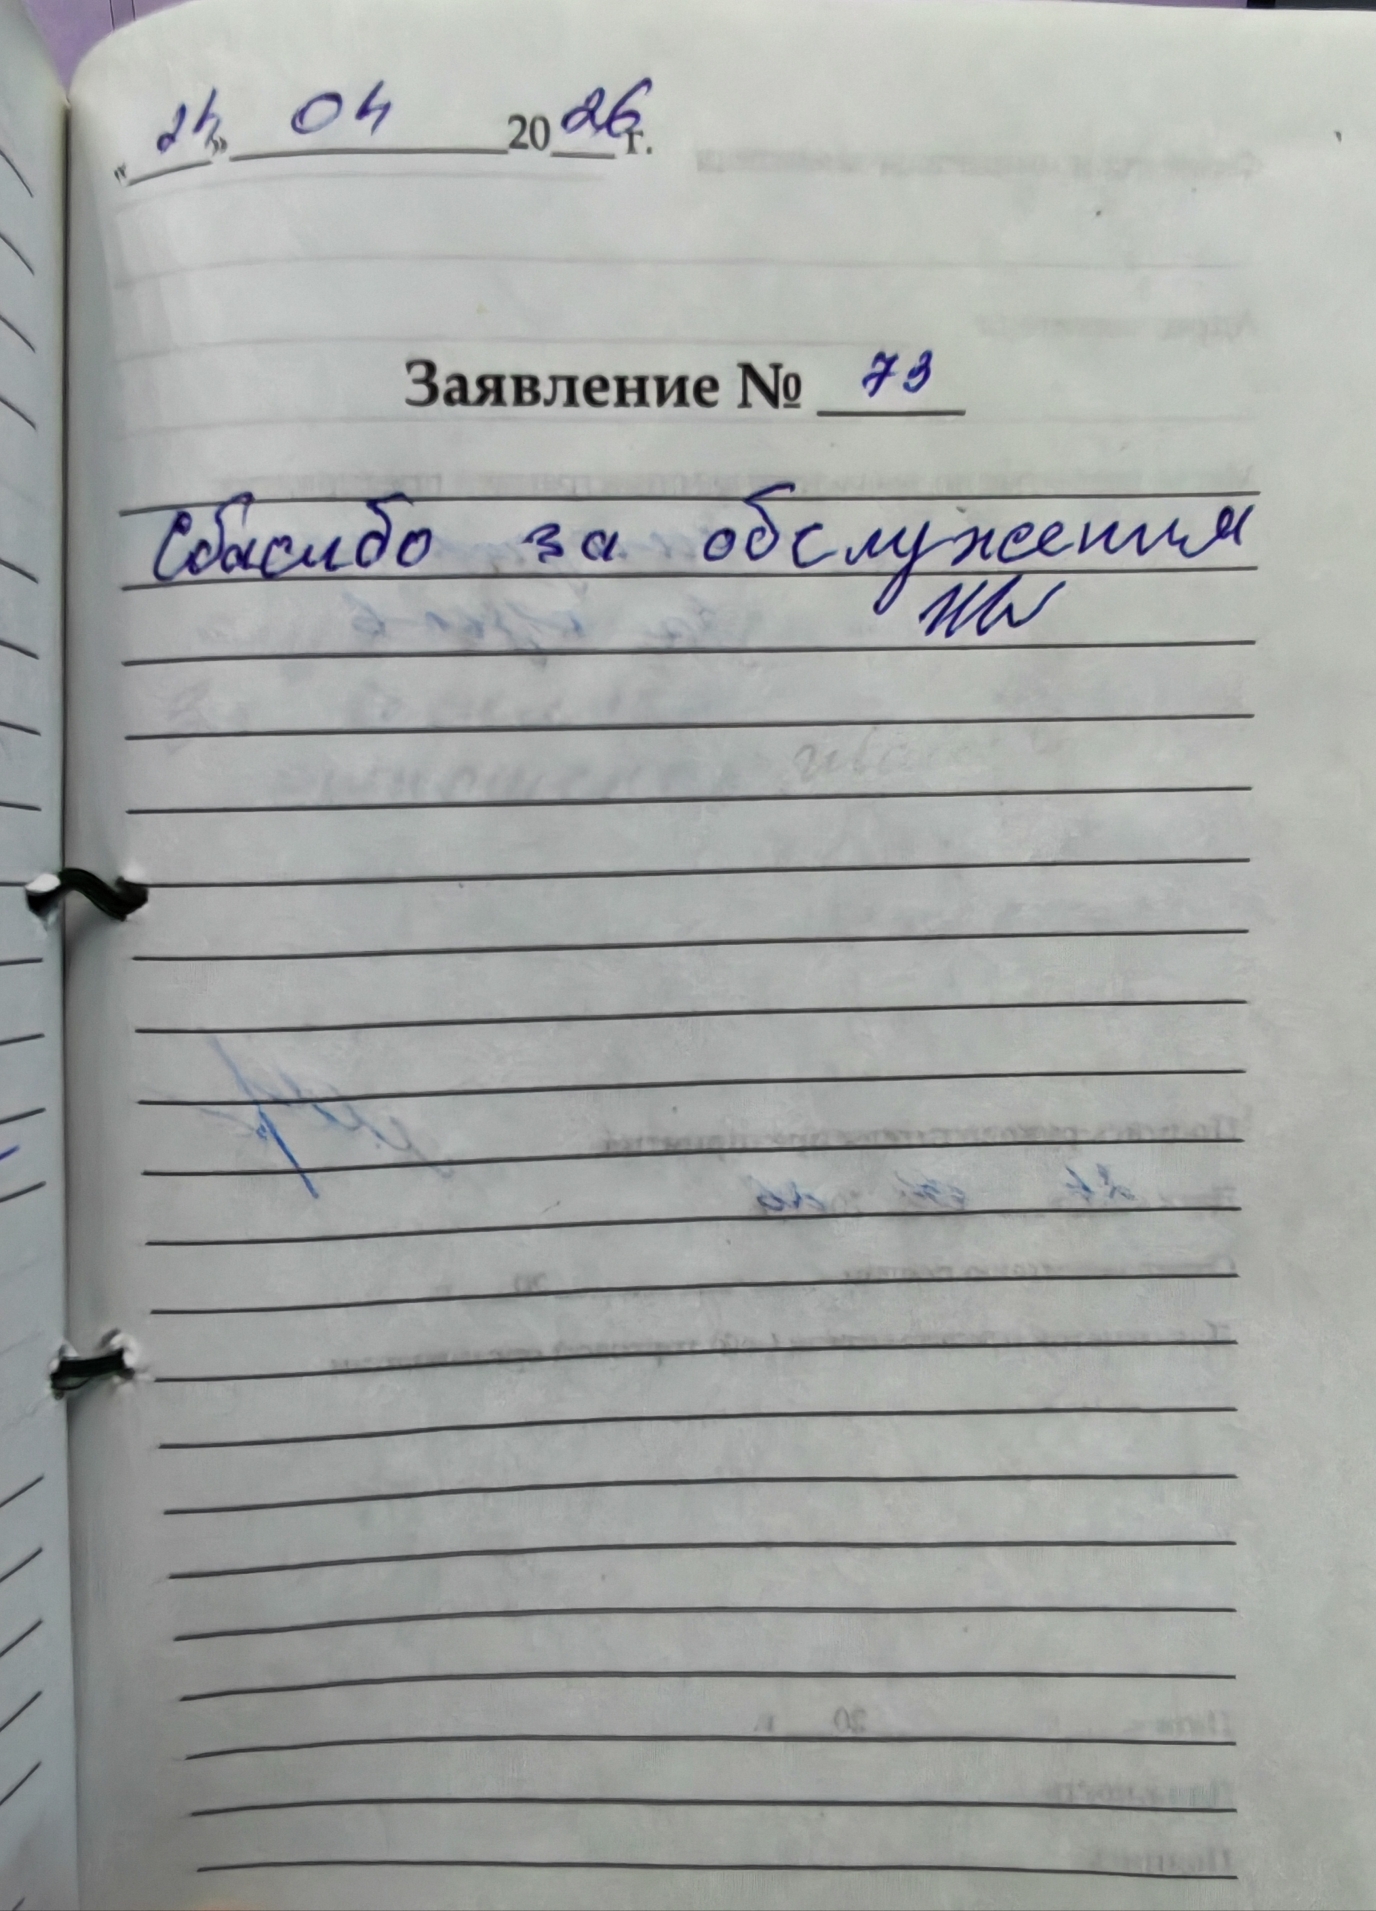 «24» 04 2026 г.
Заявление № 73
Сбасибо за обслужения